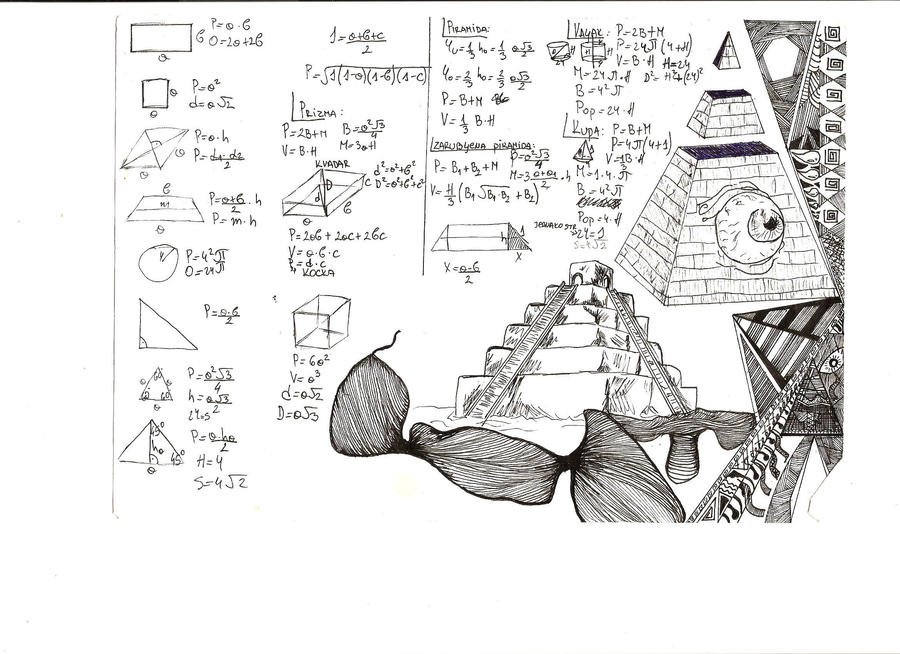 P=a·b
O=2a+2b
b
a
P=a²
d=a√2
a
P=a·h
P=d₁·d₂/2
a
a
b
m
P=a+b/2·h
P=m·h
a
r
P=r²π
O=2rπ
P=a·b/2
P=a²√3/4
h=a√3/2
a
a
60
60
60
a
P=a·ha/2
H=r
S=r√2
45°
ha
45°
a
s=a+b+c/2
P=√s(s-a)(s-b)(s-c)
PRIZMA:
P=2B+M
V=B·H
B=a²√3/4
M=3aH
KVADAR
d²=a²+b²
D²=a²+b²+c²
D
d
c
b
a
P=2ab+2ac+2bc
V=a·b·c
P=d·c
KOCKA
P=6a²
V=a³
d=a√2
D=a√3
PIRAMIDA:
ru=1/3 ha=1/3 a√3/2
ro=2/3 ha=2/3 a√3/2
P=B+M
V=1/3 B·H
ZARUBLJENA PIRAMIDA:
P=B₁+B₂+M
V=H/3(B₁√B₁·B₂+B₂)
B=a²√3/4
M=3a+a₁/2·h
h
x
x=a-b/2
VALJAK:
P=2B+M
P=2rπ(r+H)
V=B·H
H=2r
M=2rπ·H
D²=H²+(2r)²
B=r²π
Pop=2r·H
KUPA:
P=B+M
P=rπ(r+s)
V=1/3B·H
M=s·r·π
B=r²π
Pop=r·H
JEDNAKOSTR.
2r=s
S=r√2